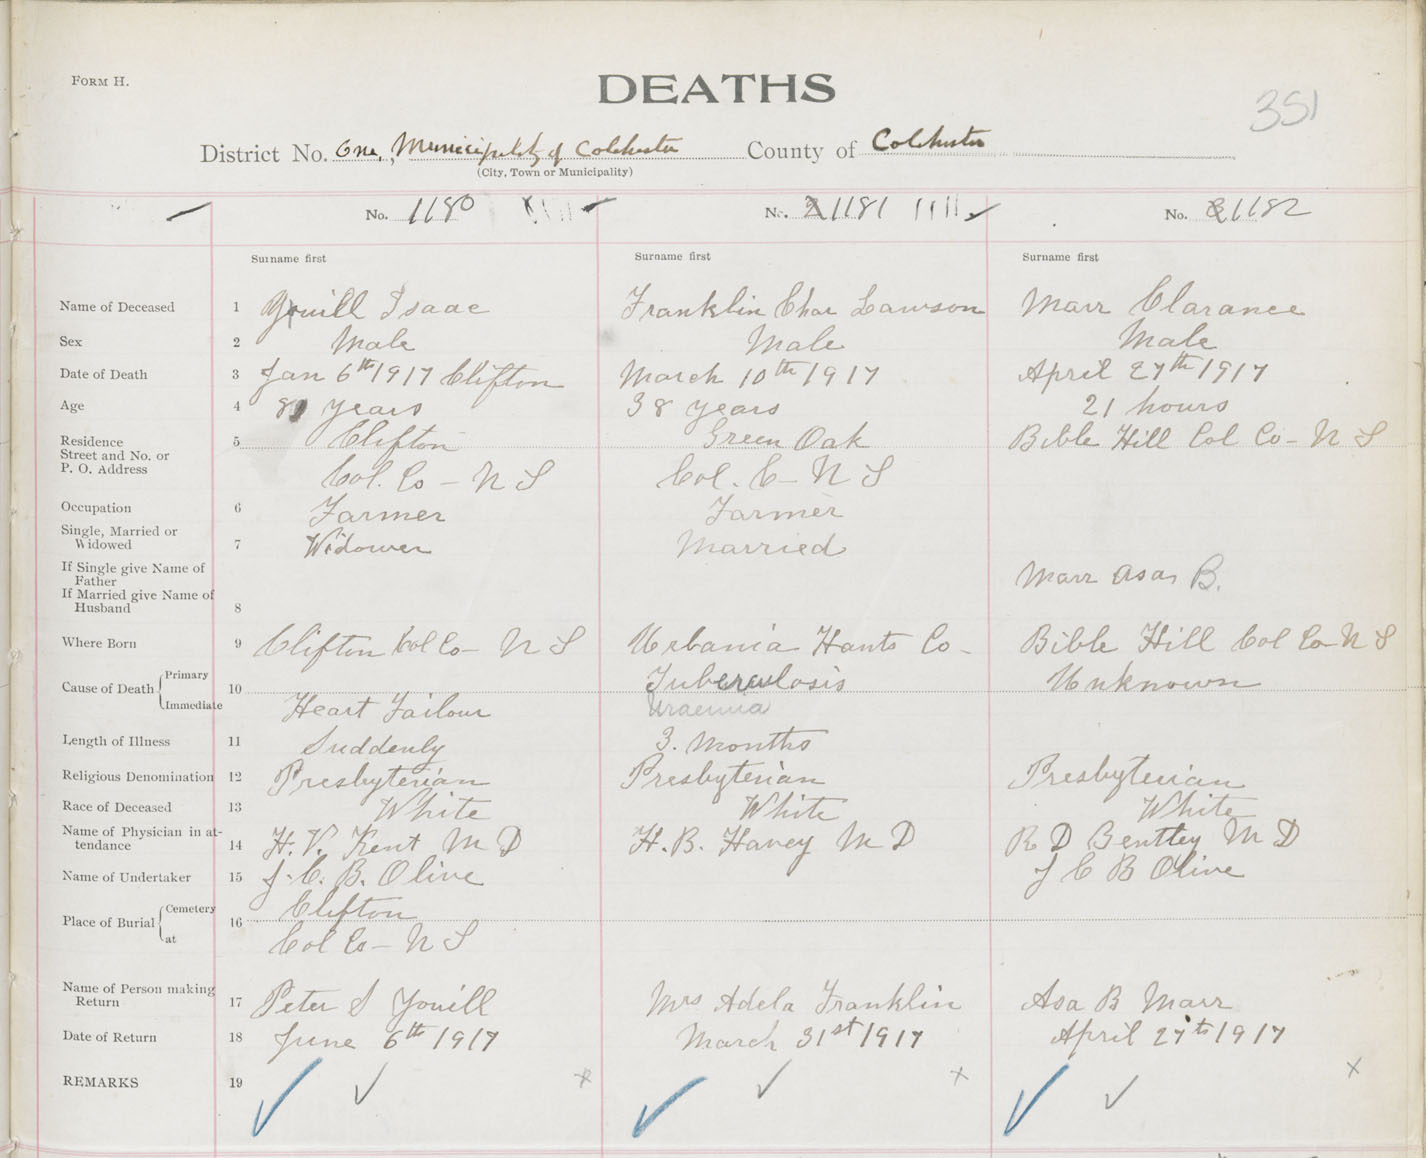 FORM H.
DEATHS
351
District No. One, Municipality of Colchester County of Colchester
(City, Town or Municipality)
No. 1180 No. 2 1181 No. 3 1182
Surname first Surname first Surname first
Name of Deceased 1 Youill Isaac Franklin Char Lawson Marr Clarance
Sex 2 Male Male Male
Date of Death 3 Jan 6th 1917 Clifton March 10th 1917 April 27th 1917
Age 4 years 38 years 21 hours
Residence 5 Clifton Green Oak Bible Hill Col Co - N S
Street and No. or
P. O. Address Col. Co - N S Col. C - N S
Occupation 6 Farmer Farmer
Single, Married or
Widowed 7 Widower Married
If Single give Name of
Father Marr Asa B.
If Married give Name of
Husband 8
Where Born 9 Clifton Col Co - N S Urbania Hants Co - Bible Hill Col Co - N S
Cause of Death Primary 10 Tuberculosis Unknown
Immediate Heart Failour Uraemia
Length of Illness 11 Suddenly 3. Months
Religious Denomination 12 Presbyterian Presbyterian Presbyterian
Race of Deceased 13 White White White
Name of Physician in at-
tendance 14 H. V. Kent M D H. B. Havey M D R D Benttey M D
Name of Undertaker 15 J. C. B. Olive J C B Olive
Place of Burial Cemetery 16 Clifton
at Col Co - N S
Name of Person making
Return 17 Peter S Youill Mrs Adela Franklin Asa B Marr
Date of Return 18 June 6th 1917 March 31st 1917 April 27th 1917
REMARKS 19 x x x